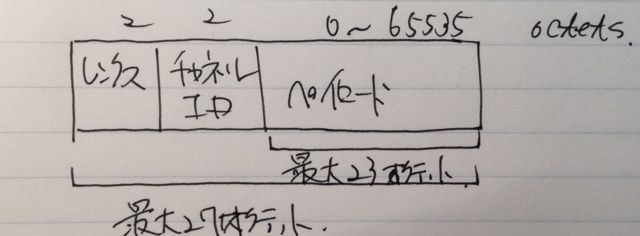 2 2 0~65535 octets.
レングス チャネル
ID ペイロード
最大23オクテット.
最大27オクテット.